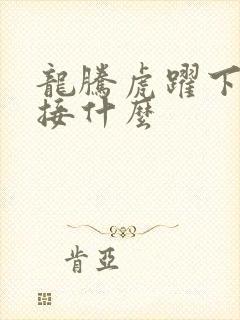 龍騰虎躍下
接什麼
肯亞